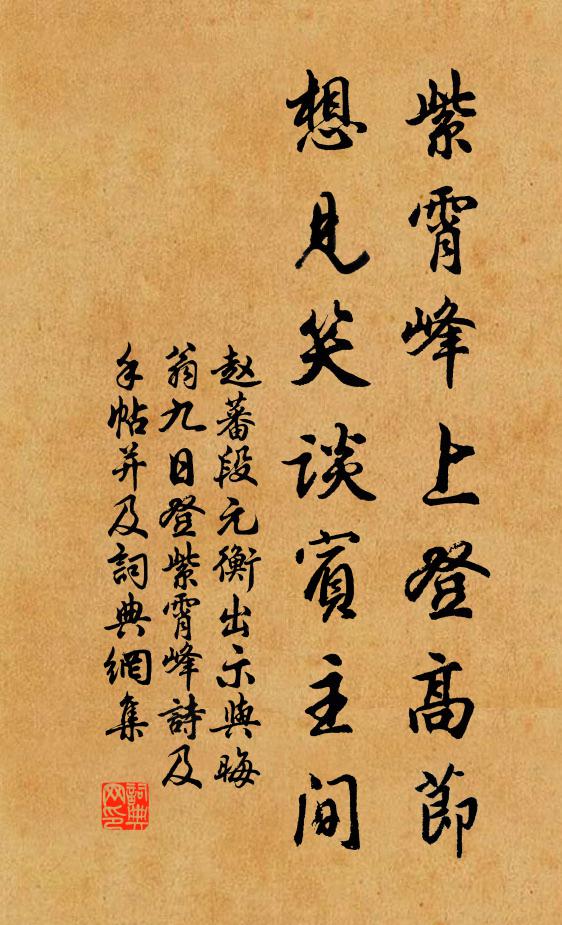 紫霄峰上登高節
想見笑談賓主间
赵蕃段元衡出示與晦
翁九日登紫霄峰詩及
手帖并及詞典網集
詞典
网印